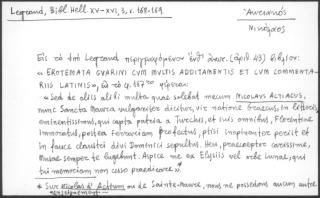 Legrand, Bibl. Hell. XV-XVI, 3, σ. 168-169
Νικόλαος
Εἰς τὸ ἀπὸ Legrand περιγραφόμενον ἐνθ' ἀνωτ. (ἀριθ. 43) βιβλίον:
« EROTEMATA GVARINI CVM MVLTIS ADDITAMENTIS ET CVM COMMENTA-
RIIS LATINIS»,
« Sed de aliis alibi multa quae solebat mecum NICOLAVS
nunc Sancta Maura vulgariter dicitur, vir natione Graecus, in litteris
eminentissimus, qui capta patria a Turchis, et suis omnibus, Florentiae
immoratus, postea Ferrariam profectus, ptisi inopinanter periit et
in fauce claustri divi Dominici sepultus. Heu, praeceptor carissime,
Musae semper te lugebunt. Aspice me ex Elysiis vel orbe lunae, qui
tui memoriam non cesso praedicare »*
* Sur Nicolas d' ou de Sainte-Maure, nous ne possédons aucun autre
renseignement.